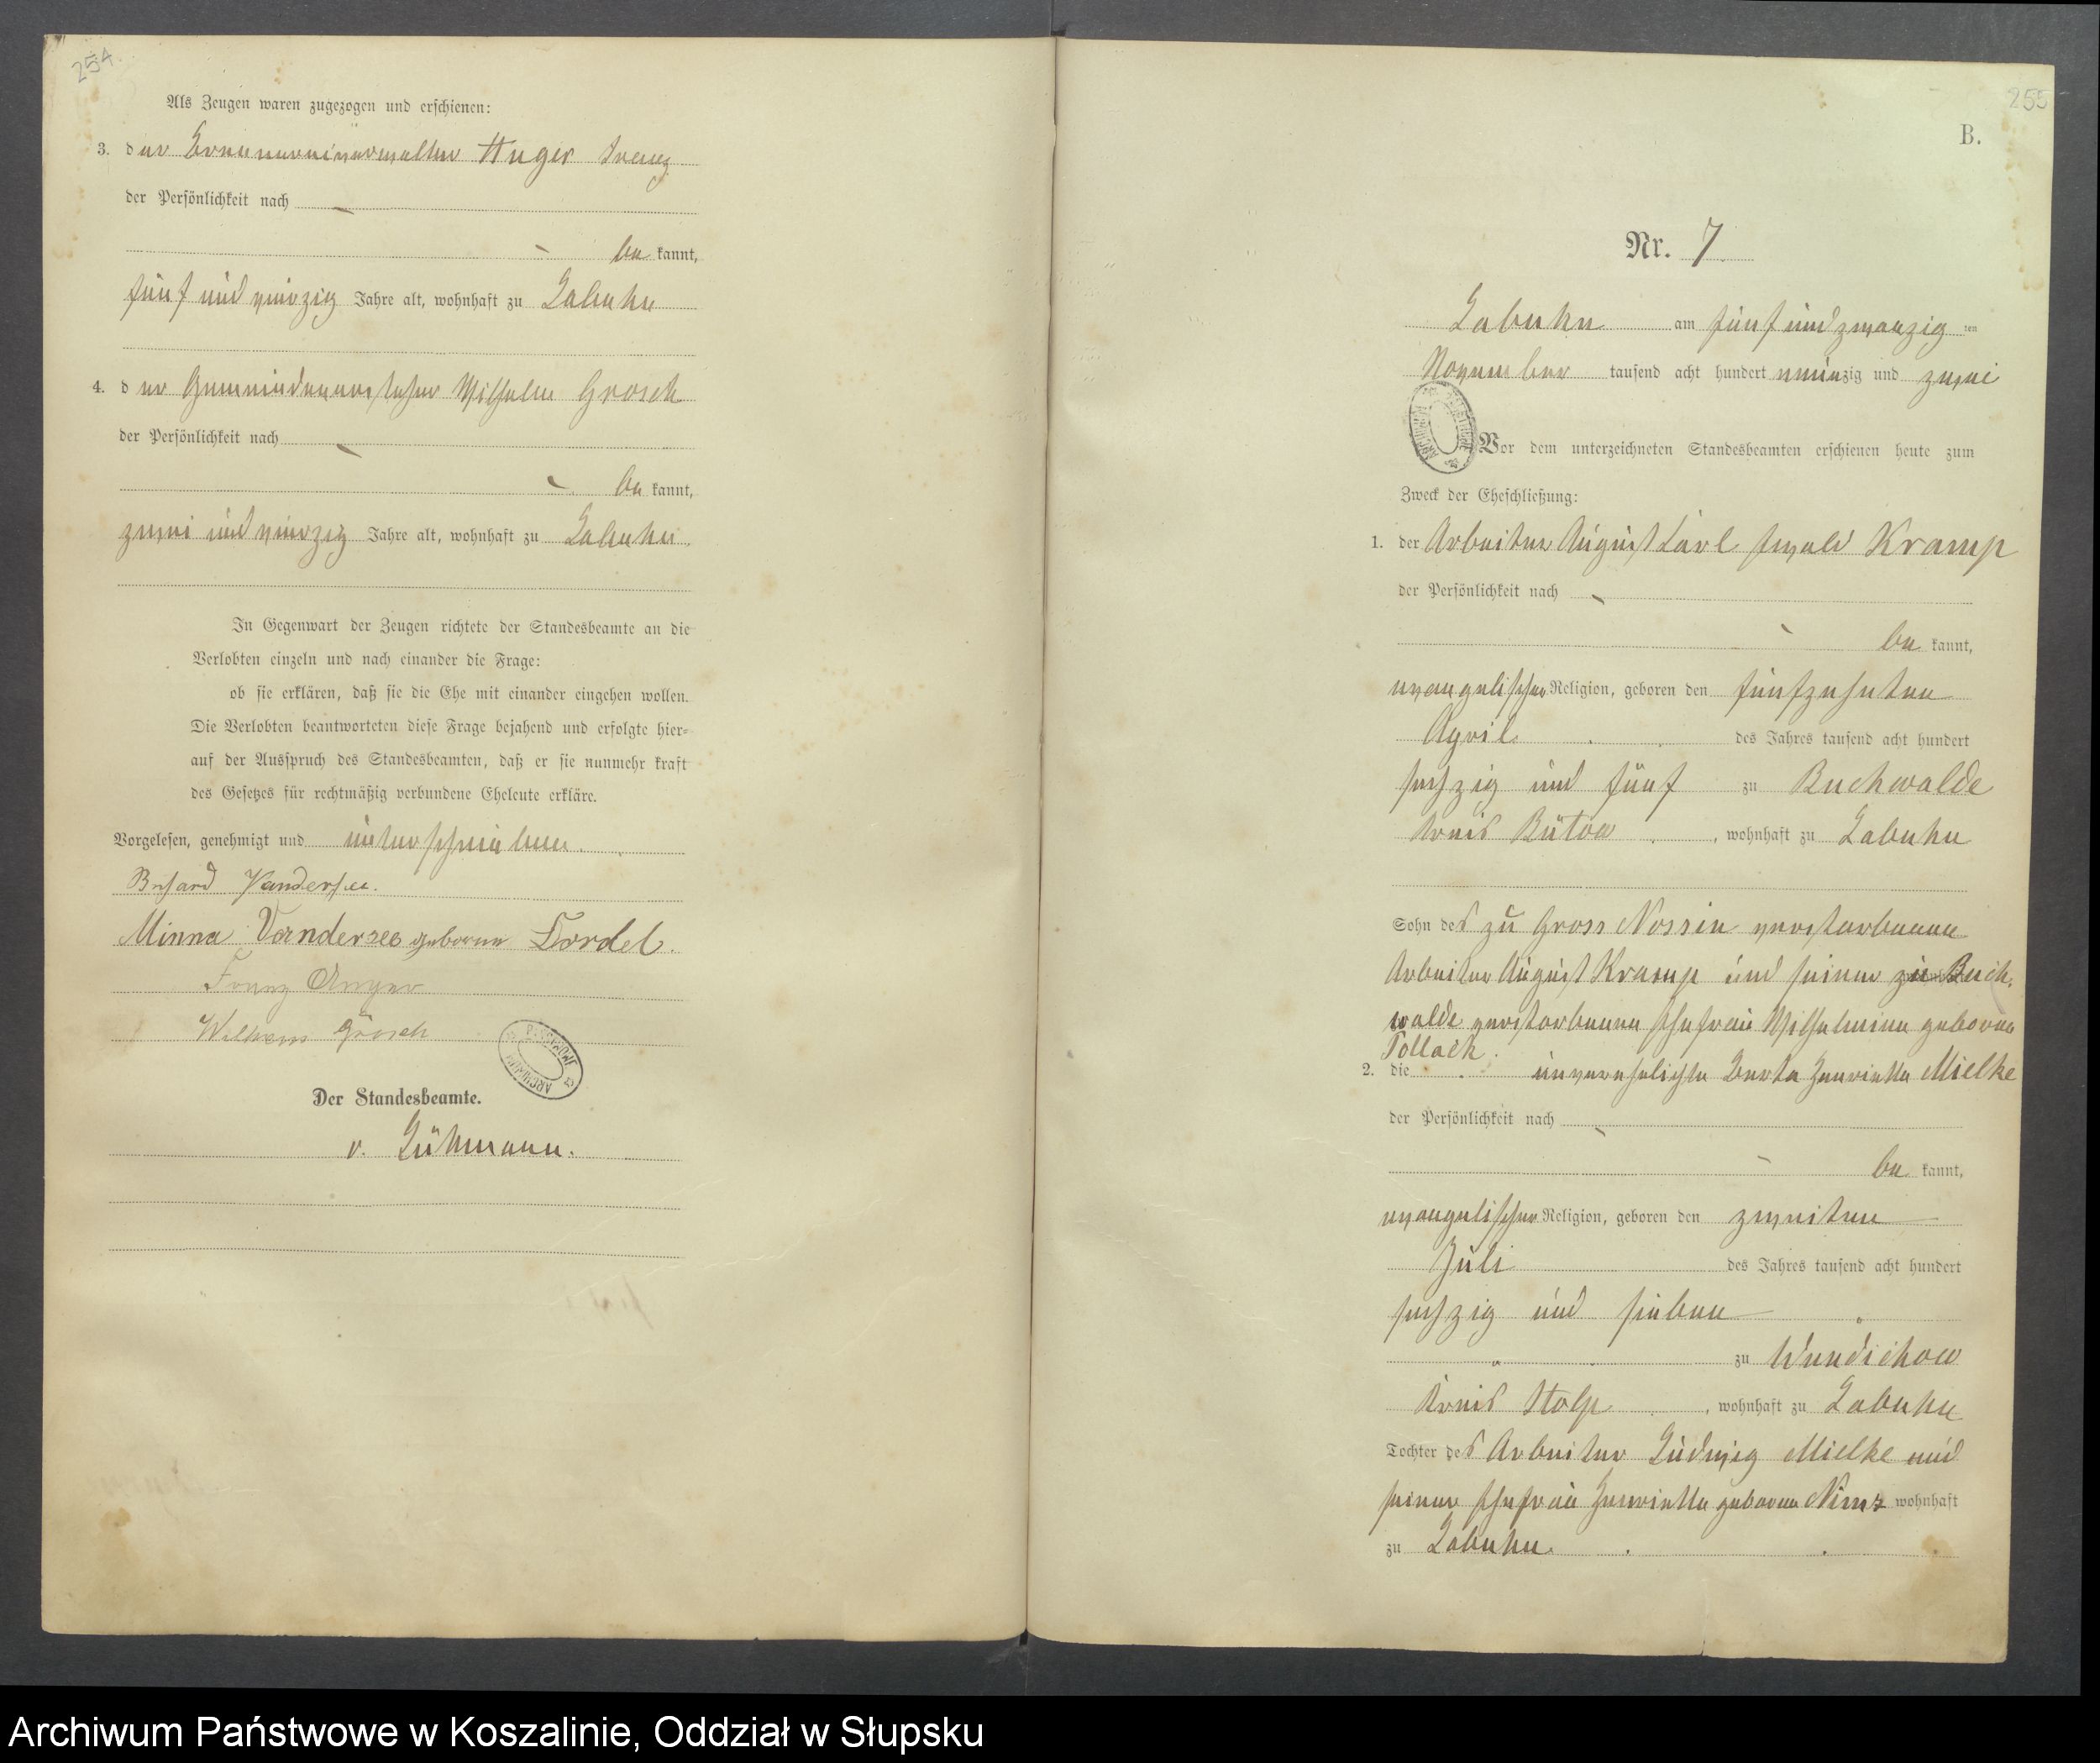 254
Als Zeugen waren zugezogen und erschienen:
3. der Brennereiverwalter Unger Franz
der Persönlichkeit nach
be kannt,
fünf und vierzig Jahre alt, wohnhaft zu Labuhn
4. der Gemeindevorsteher Wilhelm Grosch
der Persönlichkeit nach
be kannt,
zwei und vierzig Jahre alt, wohnhaft zu Labuhn.
In Gegenwart der Zeugen richtete der Standesbeamte an die
Verlobten einzeln und nach einander die Frage:
ob sie erklären, daß sie die Ehe mit einander eingehen wollen.
Die Verlobten beantworteten diese Frage bejahend und erfolgte hier-
auf der Ausspruch des Standesbeamten, daß er sie nunmehr kraft
des Gesetzes für rechtmäßig verbundene Eheleute erkläre.
Vorgelesen, genehmigt und unterschrieben.
Vandersee.
Minna Vandersee geborene
Franz Unger
Wilhelm Grosch
Der Standesbeamte.
v. Lühmann.
255
B.
Nr. 7
Labuhn am fünf und zwanzig ten
November tausend acht hundert neunzig und zwei
Vor dem unterzeichneten Standesbeamten erschienen heute zum
Zweck der Eheschließung:
1. der Arbeiter August Carl Ewald Kramp
der Persönlichkeit nach
be kannt,
evangelischer Religion, geboren den fünfzehnten
April des Jahres tausend acht hundert
sechzig und fünf zu Buchwalde
Kreis Bütow, wohnhaft zu Labuhn
Sohn des zu Gross Nossin verstorbenen
Arbeiter August Kramp und seiner zu Buch-
walde verstorbenen Ehefrau Wilhelmine geborene
Pollack.
2. die unverehelichte Berta Henriette Mielke
der Persönlichkeit nach
be kannt,
evangelischer Religion, geboren den zweiten
Juli des Jahres tausend acht hundert
sechzig und sieben
zu Wundichow
Kreis Stolp, wohnhaft zu Labuhn
Tochter des Arbeiter Ludwig Mielke und
seiner Ehefrau Henriette geborene Nimz wohnhaft
zu Labuhn.
Archiwum Państwowe w Koszalinie, Oddział w Słupsku